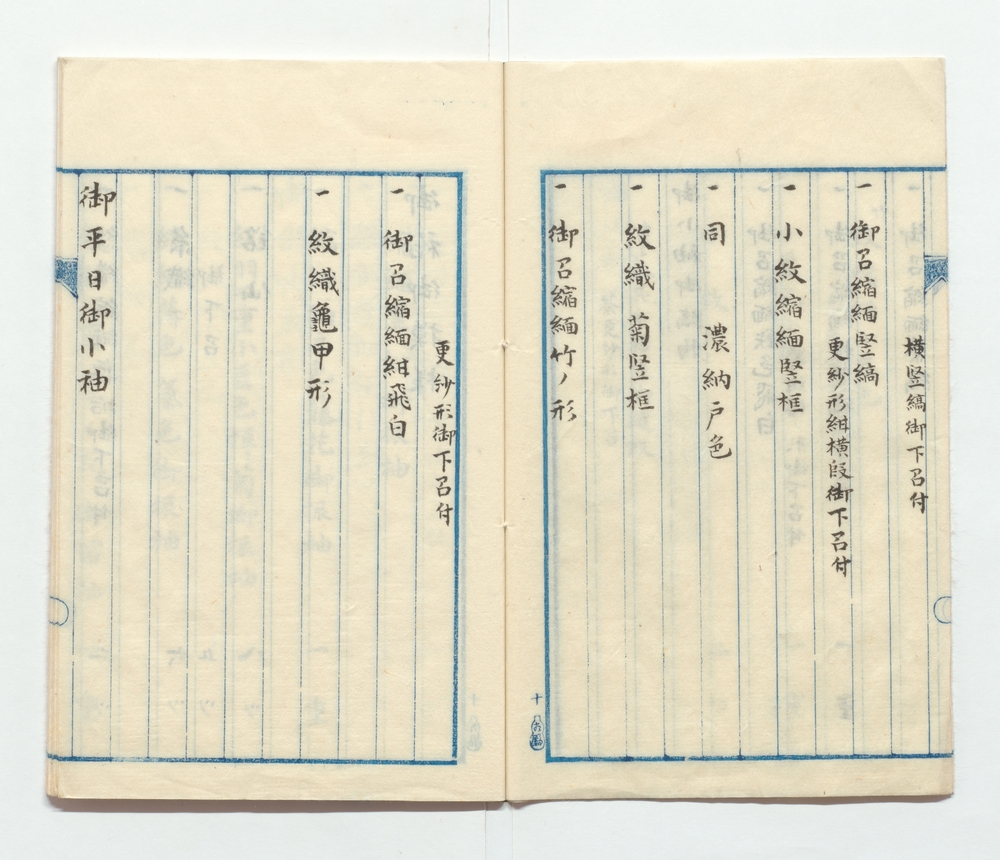 横竪縞御下召付
一 御召縮緬竪縞
更紗形紺横段御下召付
一 小紋縮緬竪框
一 同 濃納戸色
一 紋織菊竪框
一 御召縮緬竹ノ形
十
更紗形御下召付
一 御召縮緬紺飛白
一 紋織龜甲形
御平日御小袖